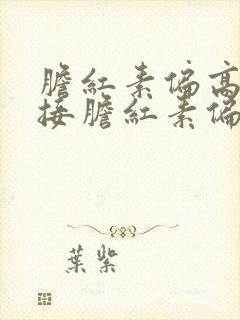 膽紅素偏高
接膽紅素偏
葉紫